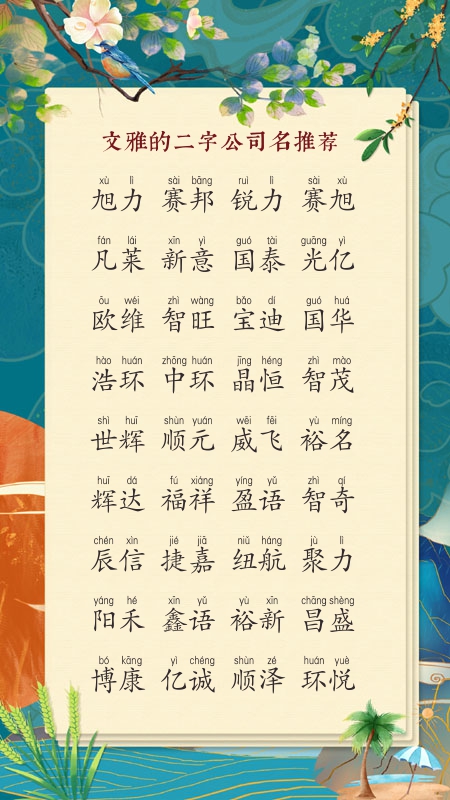 文雅的二字公司名推荐
xù lì sài bāng ruì lì sài xù
旭力 赛邦 锐力 赛旭
fán lái xīn yì guó tài guāng yì
凡莱 新意 国泰 光亿
ōu wéi zhì wàng bǎo dí guó huá
欧维 智旺 宝迪 国华
hào huán zhōng huán jīng héng zhì mào
浩环 中环 晶恒 智茂
shì huī shùn yuán wēi fēi yù míng
世辉 顺元 威飞 裕名
huī dá fú xiáng yíng yǔ zhì qí
辉达 福祥 盈语 智奇
chén xìn jié jiā niǔ háng jù lì
辰信 捷嘉 纽航 聚力
yáng hé xīn yǔ yù xīn chāng shèng
阳禾 鑫语 裕新 昌盛
bó kāng yì chéng shùn zé huán yuè
博康 亿诚 顺泽 环悦